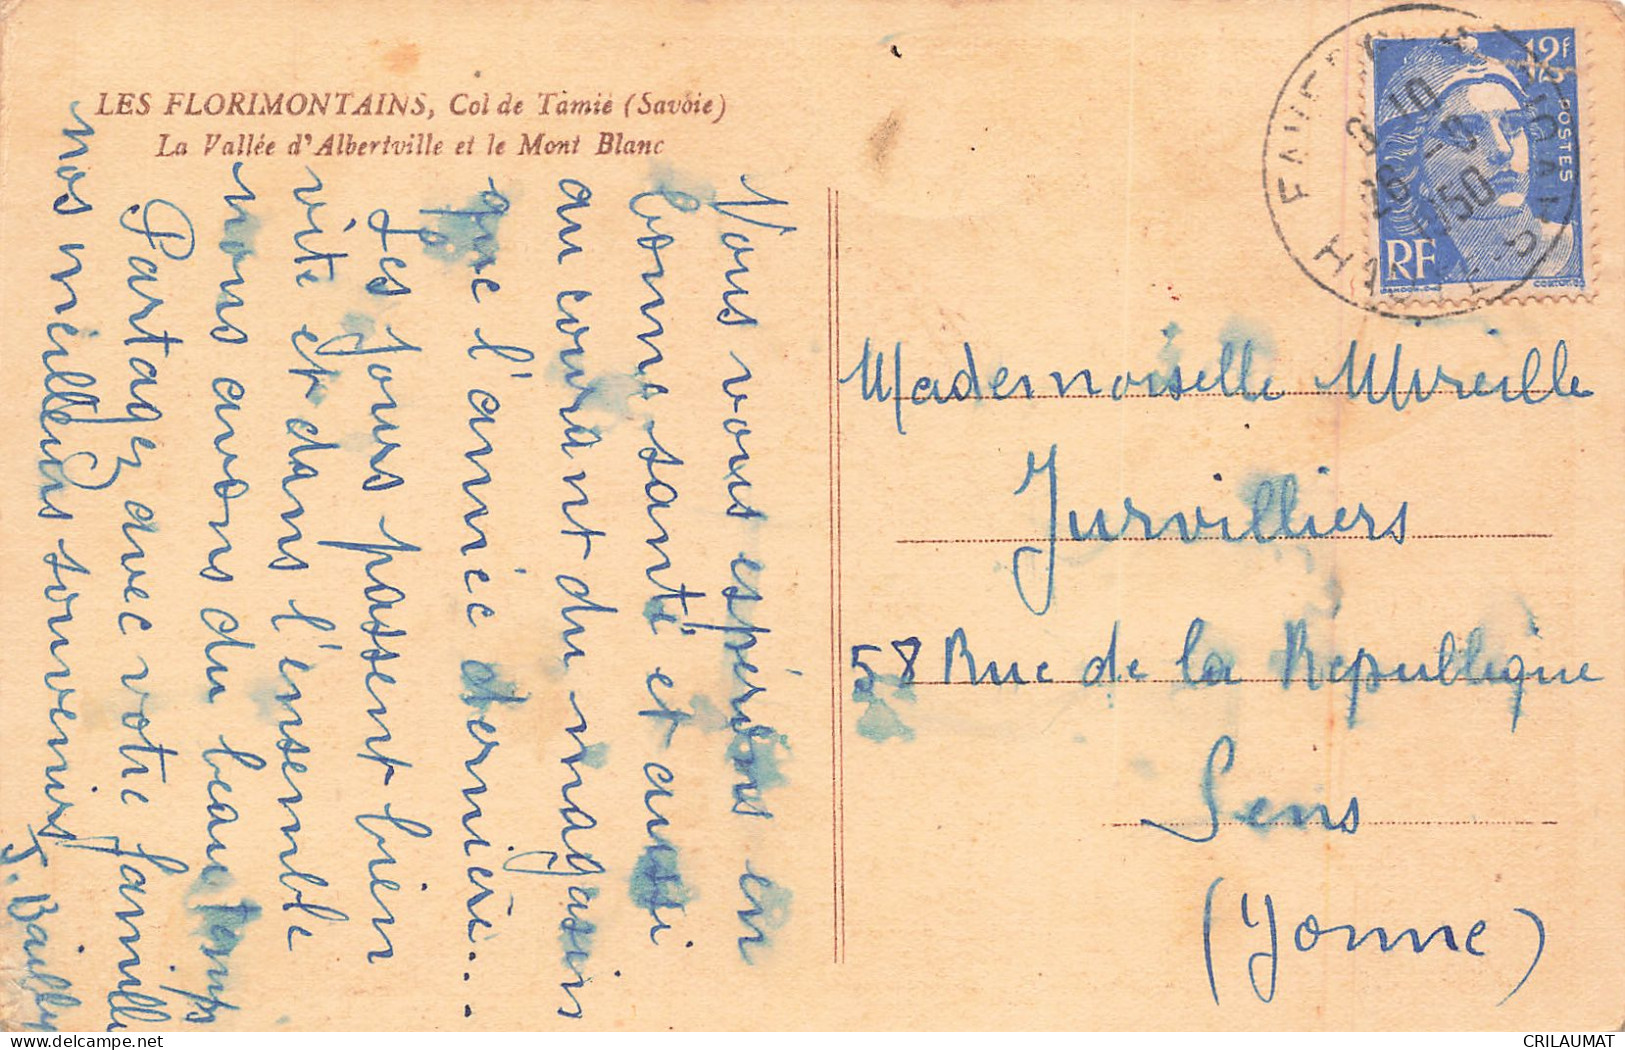 LES FLORIMONTAINS, Col de Tamié (Savoie)
La Vallée d'Albertville et le Mont Blanc
Nous vous espérons en
bonne santé et aussi
au courant du magasin
que l'année dernière...
Les jours passent bien
vite et dans l'ensemble
nous avons du beau temps
Partagez avec votre famille
nos meilleurs souvenirs
J. Bailly
12F
POSTES
RF
8-10
26-8
1950
Mademoiselle Mireille
Jurvilliers
58 Rue de la Republique
Sens
(Yonne)
CRILAUMAT